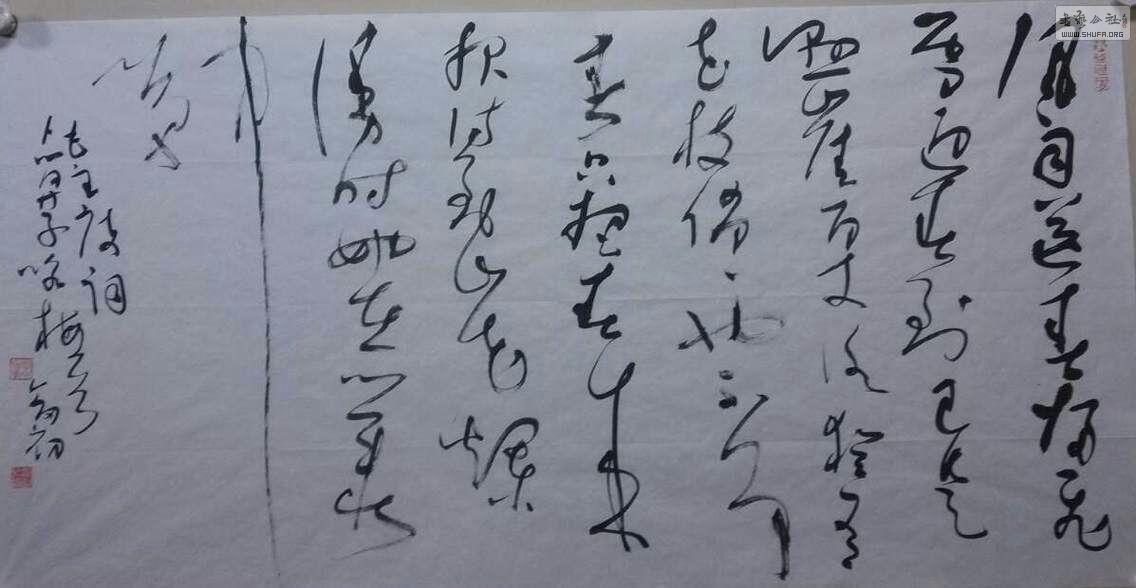 书艺公社
WWW.SHUFA.ORG
风雨送春归飞
雪迎春到已是
悬崖百丈冰犹有
花枝俏俏也不争
春只把春来
报待到山花烂
漫时她在丛
中
笑
毛主席词
卜算子咏梅